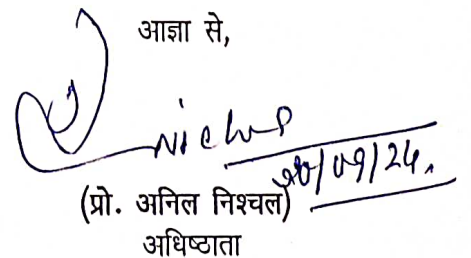 आज्ञा से,
20/09/24.
(प्रो. अनिल निश्चल)
अधिष्ठाता